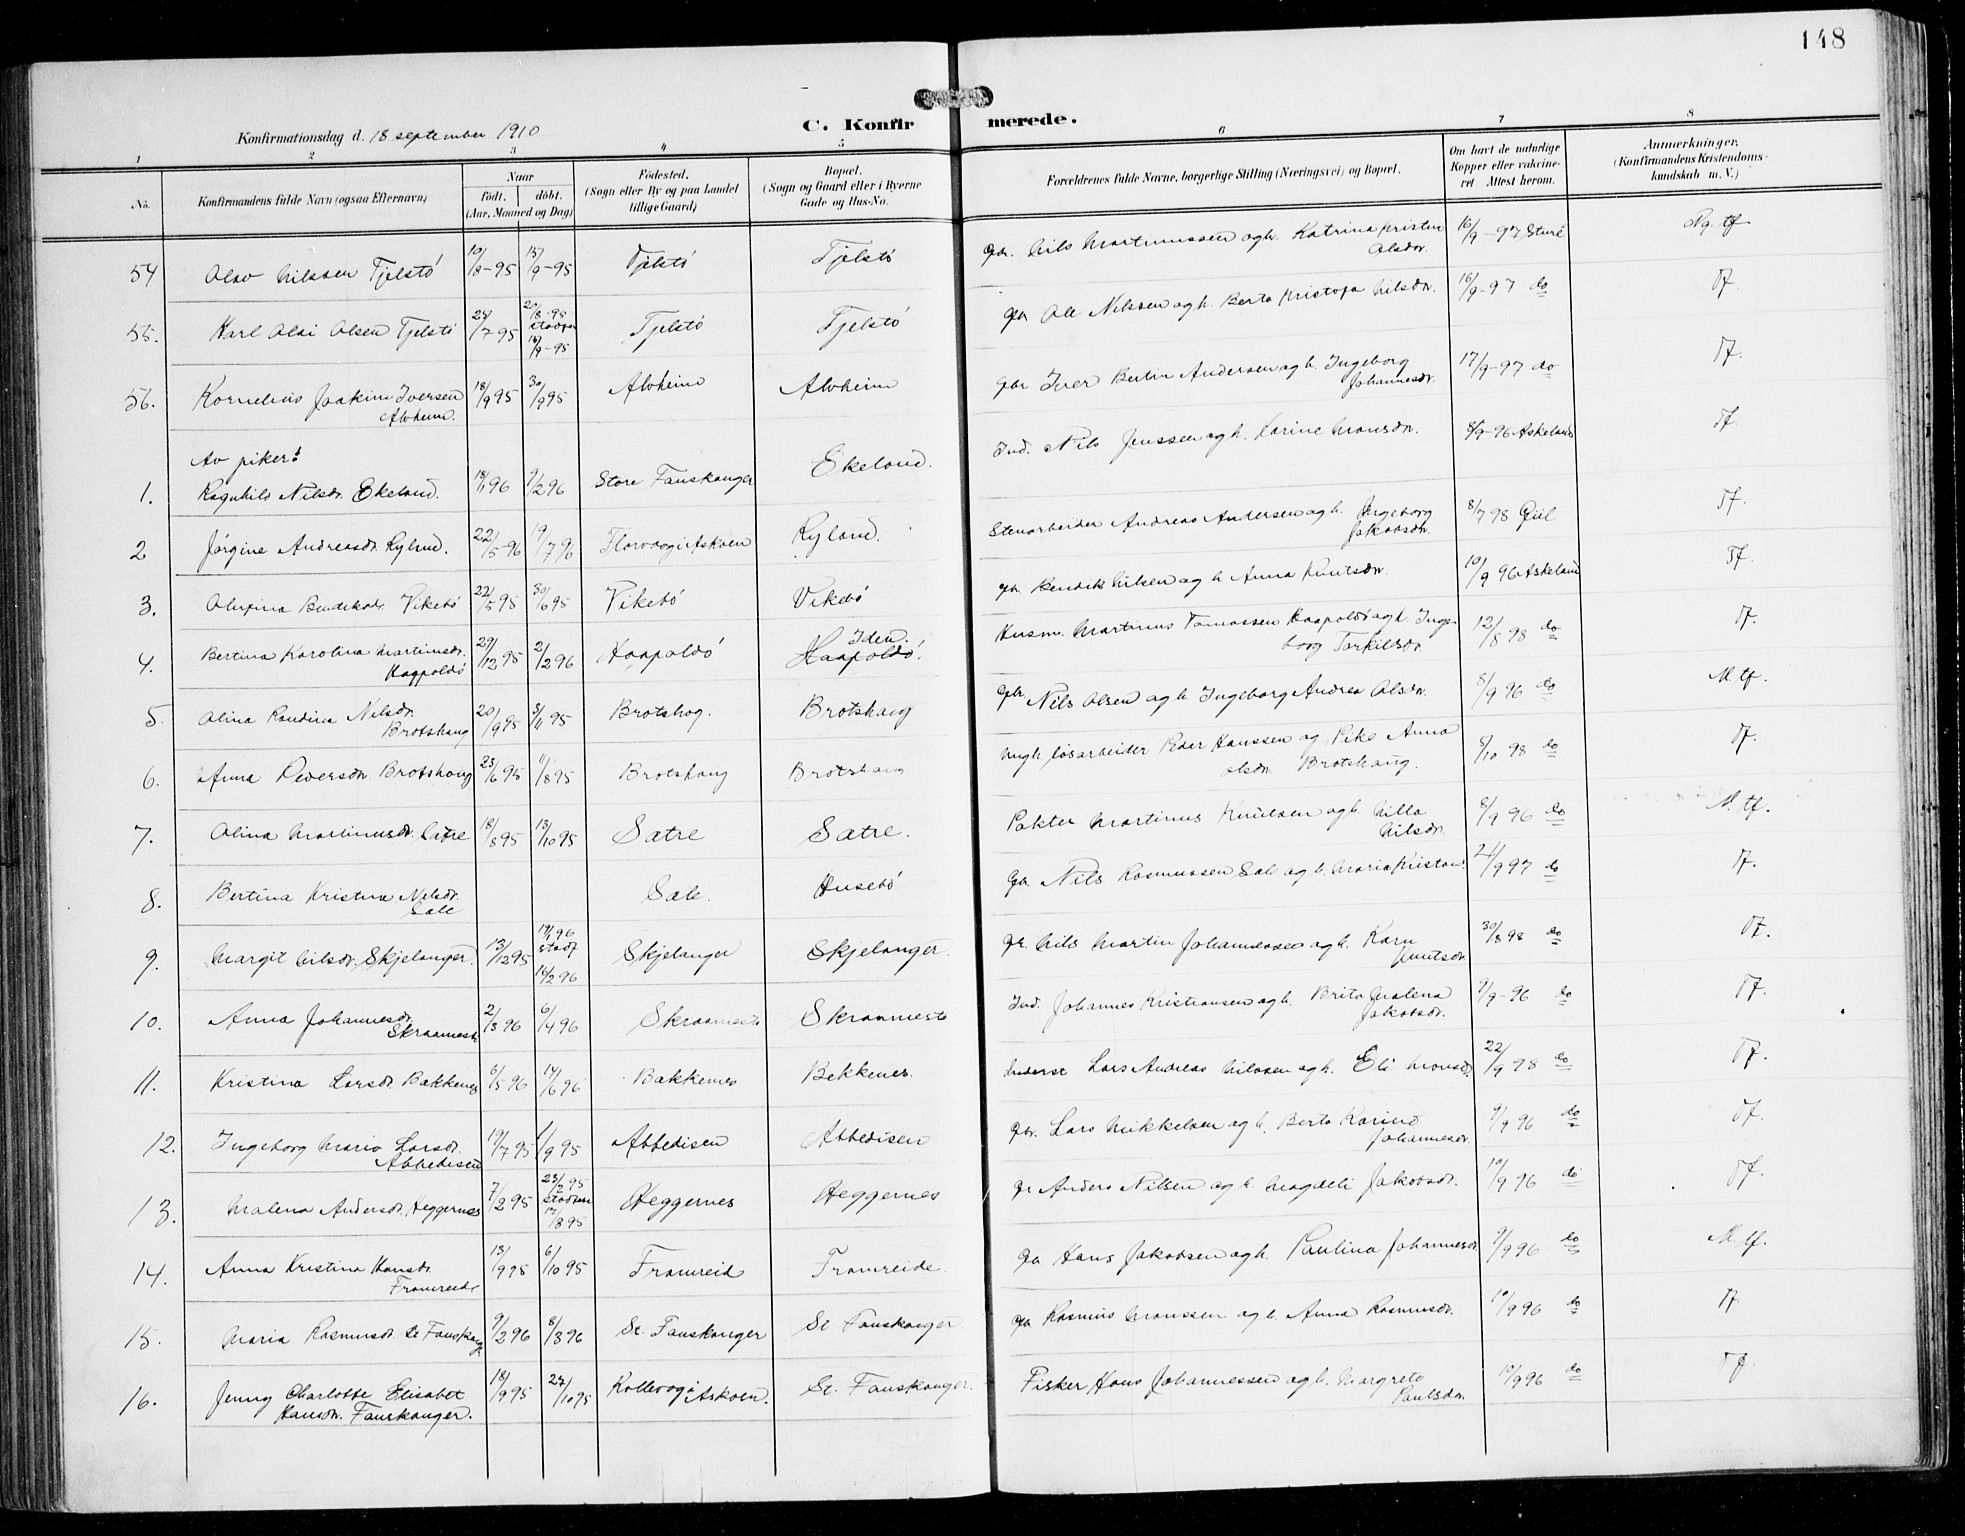 148
Konfirmationsdag d. 18 september 1910
C. Konfirmerede.
1 2 3 4 5 6 7 8
No.
Konfirmandens fulde Navn (ogsaa Efternavn)
Naar
født. døbt.
(Aar, Maaned og Dag)
Fødested.
(Sogn eller By og paa Landet
tillige Gaard)
Bopæl.
(Sogn og Gaard eller i Byerne
Gade og Hus-No.
Forældrenes fulde Navne, borgerlige Stilling (Næringsvei) og Bopæl.
Om havt de naturlige
Kopper eller vakcine-
ret Attest herom.
Anmerkninger,
(Konfirmandens Kristendoms-
kundskab m. V.)
54 Olav Nilssen Tjelstø 10/8-95 15/9-95 Tjelstø Tjelstø Gbr. Nils Martinussen og h. Katrina Kristen Olsdr. 16/9-97 Sture Ng. tf
55. Karl Olai Olsen Tjelstø /7 95 20/8-95 Tjelstø Tjelstø Gbr Ole Nilssen og h. Berta Kristofa Nilsdr. 16/9-97 do Tf.
56. Kornelius Joakim Iversen Alvheim. 18/9 95 30/9 95 Alvheim Alvheim Gbr Iver Bertin Andersen og h. Ingeborg Johannesdr. 17/9-97 do Tf.
Av piker:
1. Ragnhild Nilsdr. Ekeland. 18/1 96 9/2 96 Store Fauskanger Ekeland. Ind. Nils Jenssen og h. Karine Monsdr. 8/9-96 Askeland Tf.
2 Jørgine Andreasdr. Ryland. 22/5-96 19/7 96 Florvaag i Askøen Ryland. Stenarbeider Andreas Andersen og h. Ingeborg Jakobsdr. 8/7 98 Tf.
3. Olufina Bendiksdr. Vikebø 22/5 95 30/6 95 Vikebø Vikebø Gbr. Bendik Nilsen og h Anna Knutsdr. 10/9 96 Askeland Tf.
4. Bertina Karolina Martinusdr. Haapoldø 29/12 95 2/2 96 Haapoldø Iden. Haapoldø. Husm. Martinus Tomassen Haapoldø og h. Ingeborg Torkilsdr. 12/8 98 do Tf.
5. Olina Randina Nilsdr. Brotshaug 20/9 95 3/11 95 Brotshog. Brotshaug Gbr. Nils Olsen og h. Ingeborg Andrea Olsdr. 8/9 96 do M. tf.
6. Anna Pedersdr. Brotshaug 23/6 95 11/8 95 Brotshaug Brotshaug Ungk. løsarbeider Peder Hanssen og Pike Anna Olsdr. Brotshaug. 8/10 98 do Tf.
7. Olina Martinusdr. Sætre 18/8 95 13/10 95 Sætre Sætre. Pakter Martinus Knutsen og h. Nilla Nilsdr. 8/9 96 do M. tf.
8. Bertina Kristina Nilsdr. Sale Sale. Husebø Gbr. Nils Rasmussen Sale og h. Maria Kristens. 21/9 97 do Tf.
9. Margit Nilsdr. Skjelanger. 13/12 95 19/1 96 stadf 16/2 96 Skjelanger Skjelanger. Gbr. Nils Martin Johannessen og h. Karn Knutsdr. 30/8 98 do Tf.
10. Anna Johannesdr. Skraamestø 2/3 96 6/4 96 Skraamestø Skraamestø Ind. Johannes Kristiansen og h. Brita Malena Jakobsdr. 9/9-96 do Tf.
11. Kristina Larsdr. Bakkenes 6/5 96 14/6 96 Bakkenes Bekkenes. Inderst Lars Andreas Nilssen og h. Eli Monsdr. 22/9 98 do Tf.
12. Ingeborg Maria Larsdr. Abbedisen 19/7 95 1/9 95 Abbedisen Abbedisen Gbr. Lars Mikkelsen og h. Berta Karina Johannesdr. 9/9 96 do Tf.
13. Malena Andersdr. Heggernes 7/2 95 23/2 95 17/8 95 Heggernes Heggernes Gr Anders Nilsen og h. Magdeli Jakobsdr. 10/9 96 do Tf.
14. Anna Kristina Hansdr. Fromreide 13/9 95 6/10 95 Fromreid Fromreide. Gbr Hans Jakobsen og h. Paulina Johannesdr. 9/9 96 do M. tf.
15. Maria Rasmusdr. St Fauskang. 9/2 96 8/3 96 St. Fauskanger St Fauskanger. Gbr Rasmus Monssen og h. Anna Rasmusdr. 10/9 96 do Tf.
16. Jenny Charlotte Elisabet Hansdr. Fauskanger. 18/9 95 27/10 95 Kollevog i Askøen. St. Fauskanger. Fisker Hans Johannessen og h. Margreta Paulsdr. 10/9 96 do Tf.